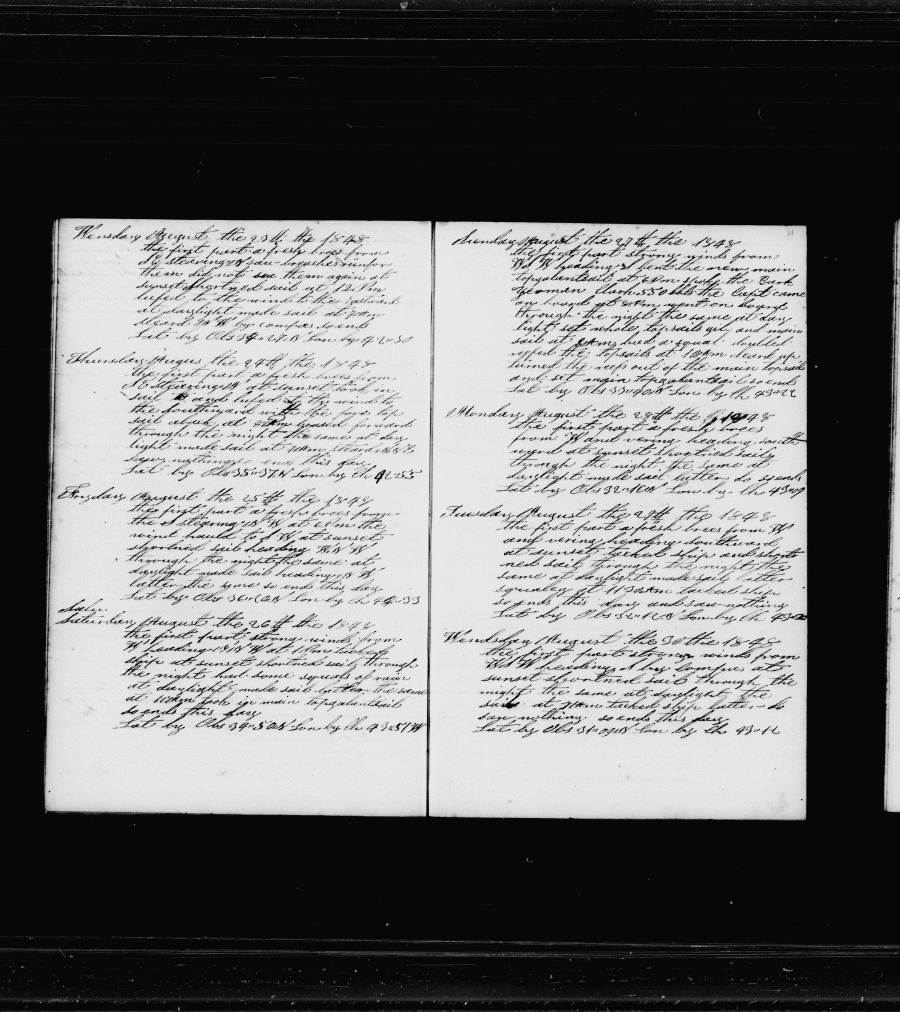 Wensday August the 23th the 1848
the first part a fresh brees from
S E steering W saw breaches run for
them did not see them again at
sunset shortned sail at 12 Pm
lufed to the wind to the Eastward
at daylight made sail at 7 Am
by compas so ends
Lat by Obs 34 27 N Lon by ch 42 30
Thursday August the 24th the 1848
the first part a fresh brees from
S E steering W at sunset took in
sail and lufed to the wind to
the Southward with the fore top
sail aback at braced forward
through the night the same at day
light made sail at 7 Am steard N N E
saw nothing ends this day
Lat by Obs 35 37 N Lon by ch 42 55
Fryday August the 25th the 1848
the first part a fresh brees from
the S stearing W at 6 Pm the
wind hauld to S W at sunset
shortned sail heading W N W
through the night the same at
daylight made sail heading N W
latter the same so ends this day
Lat by Obs 36 N Lon by ch 44 33
Satu
Saturday August the 26th the 1848
the first part strong winds from
W heading at tacked
ship at sunset shortned sail through
the night had some squals of rain
at daylight made sail latter the same
at 10 Am took in main topgalantsail
so ends this day
Lat by Obs 34 50 N Lon by ch 43 57 W
Sunday August the 27th the 1848
the first part strong winds from
W heading S bent the new main
topgalantsail at 6 Am spoke the Bark
Yeoman Clark 550 bbls the Capt came
on board at went on board
through the night the same at day
light set whole topsails gib and main
sail at had a squal doubled
reefed the topsails at 10 Am cleard up
turned the reefs out of the main topsail
and set main topgalantsail so ends
Lat by Obs 33 N Lon by ch 43 22
Monday August the 28th the 1848
the first part a fresh brees
from W and vering heading south
ward at sunset shortned sail
through the night the same at
daylight made sail latter do so ends
Lat by Obs 32 N Lon by ch 43
Tuesday August the 29th the 1848
the first part a fresh brees from W
and vering heading southward
at sunset tacked ship and short
ned sail through the night the
same at daylight made sail latter
squaley at 11 30 Am tacked ship
so ends this day and saw nothing
Lat by Obs N Lon by ch 43
Wendsday August the 30 the 1848
the first part strong winds from
W heading S by Compas at
sunset shortned sail through the
night the same at daylight the
sail at 7 Am tacked ship latter do
saw nothing so ends this day
Lat by Obs 31 09 N Lon by ch 43 12